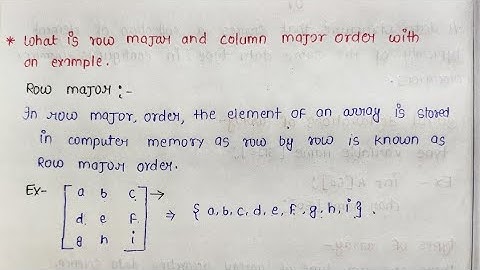 * What is row major and column major order with
an example.
Row major :-
In row major, order, the element of an array is stored
in computer memory as row by row is known as
Row major order.
Ex- [ a b c → 
d e f ⇒ { a, b, c, d, e, f, g, h, i } .
g h i ]